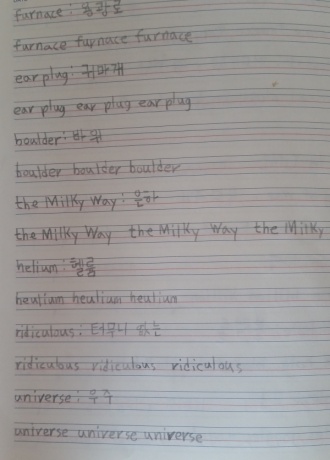 furnace : 용광로
furnace furnace furnace
ear plug : 귀마개
ear plug ear plug ear plug
boulder : 바위
boulder boulder boulder
the Milky Way : 은하
the Milky Way the Milky Way the Milky
helium : 헬륨
heulium heulium heulium
ridiculous : 터무니 없는
ridiculous ridiculous ridiculous
universe : 우주
universe universe universe